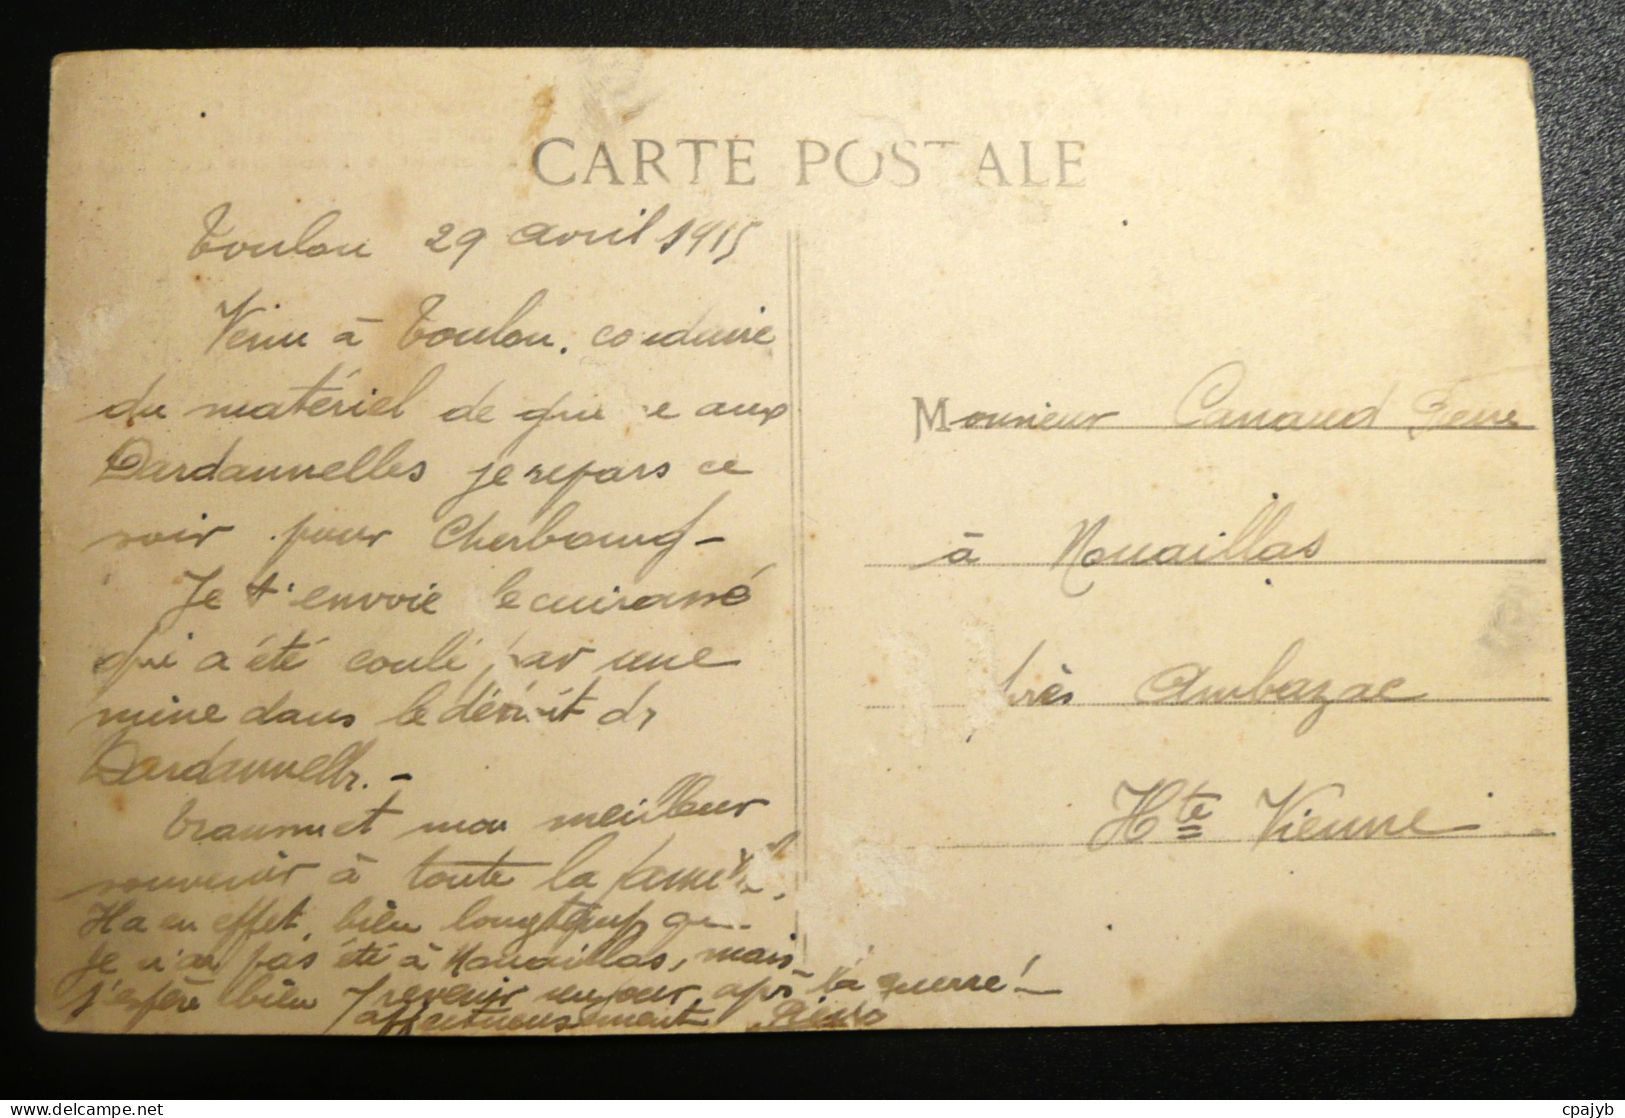 CARTE POSTALE
Toulon 29 avril 1915
Venu à Toulon. conduire
du matériel de gue e aux
Dardannelles je repars ce
soir pour Cherbourg -
Je t'envoie le cuirassé
qui a été coulé par une
mine dans le détroit ds
Dardannells. -
transmet mon meilleur
souvenir à toute la famille.
Il a en effet, bien longtemps que
je n'ai pas été à Nouaillas, mais
j'espère bien y revenir un jour aps la guerre! -
affectueusement
Monsieur Canard Pierre
à Nouaillas
près Ambazac
Hte Vienne
cpajyb